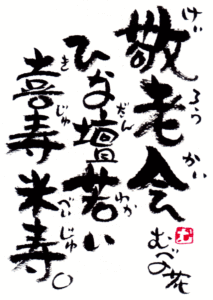 敬老会
けいろうかい
ひな壇若い
だんわか
喜寿米寿。
きじゅべいじゅ
むべの花
む